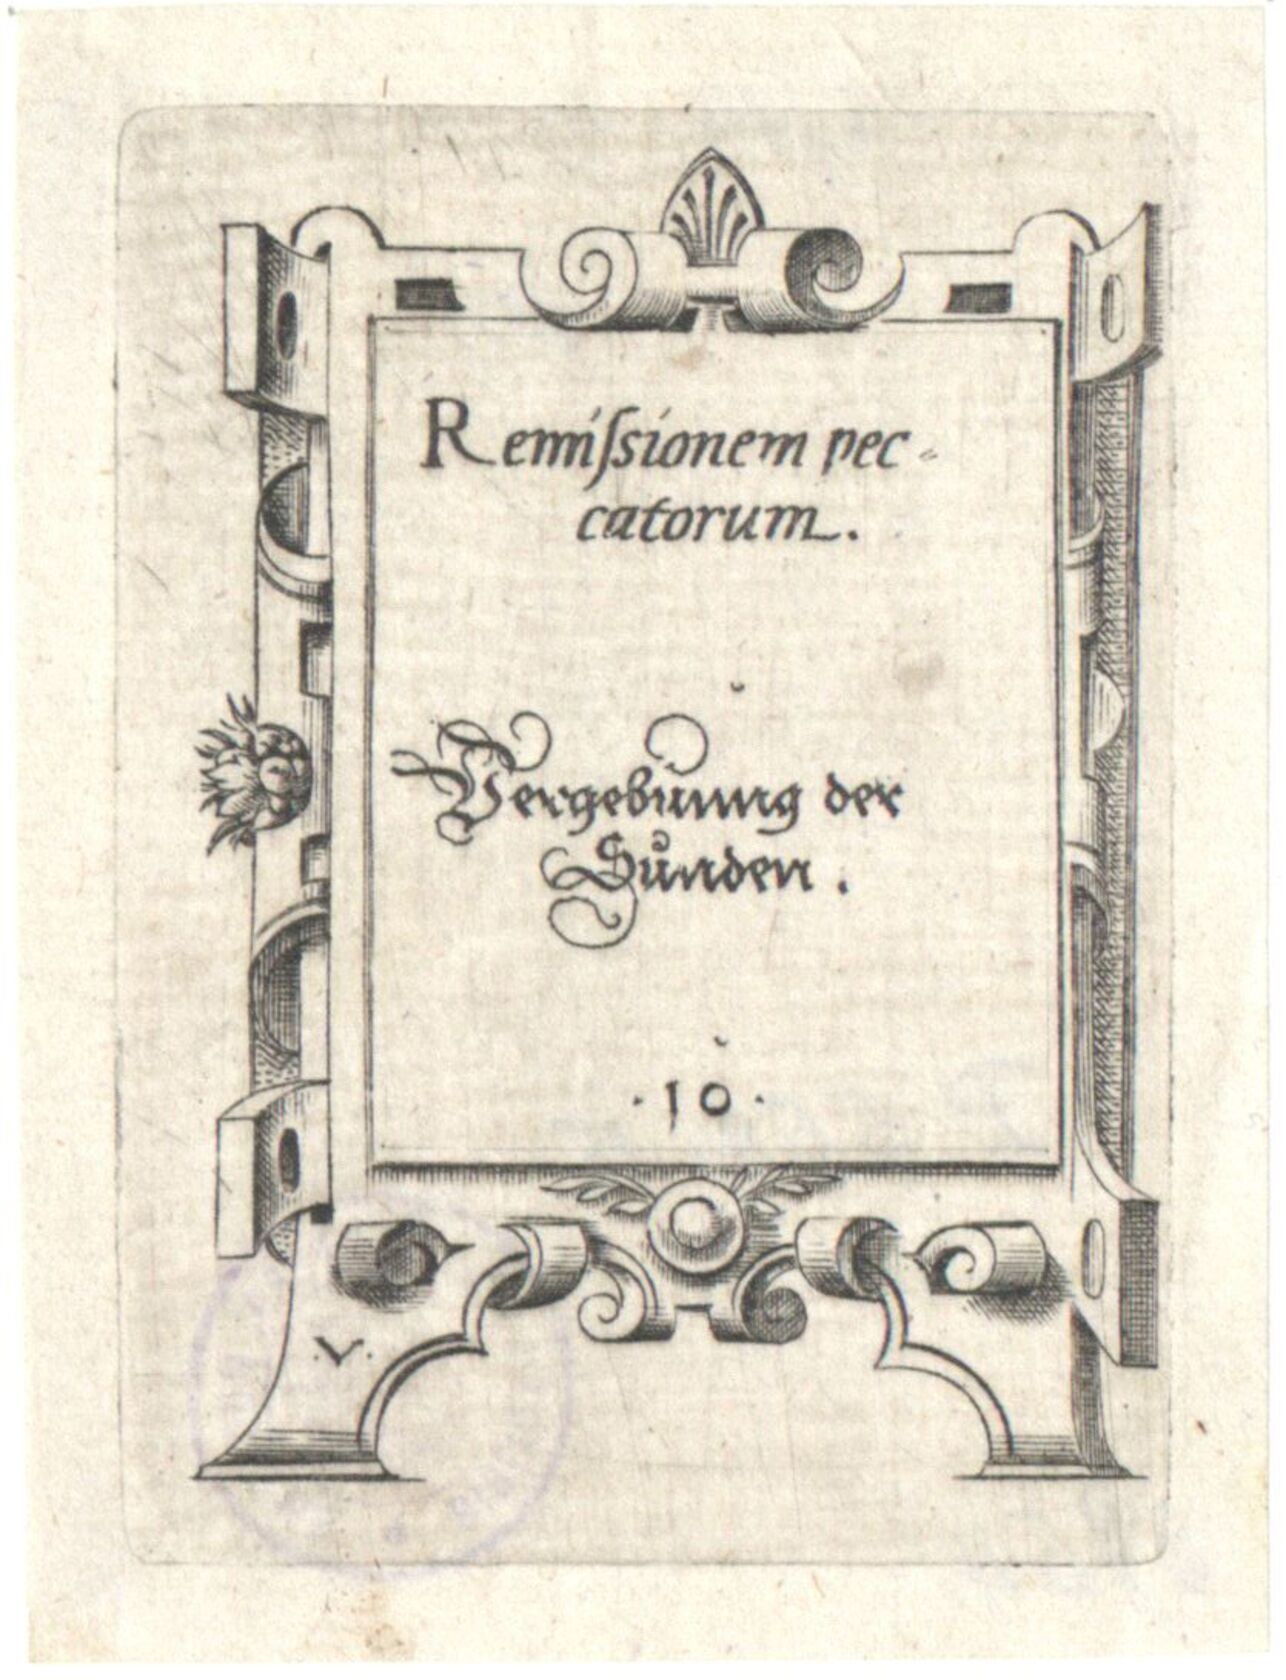 Remiſsionem pec-
catorum.
Vergebŭnng der
Sůnden.
·10·
.V.